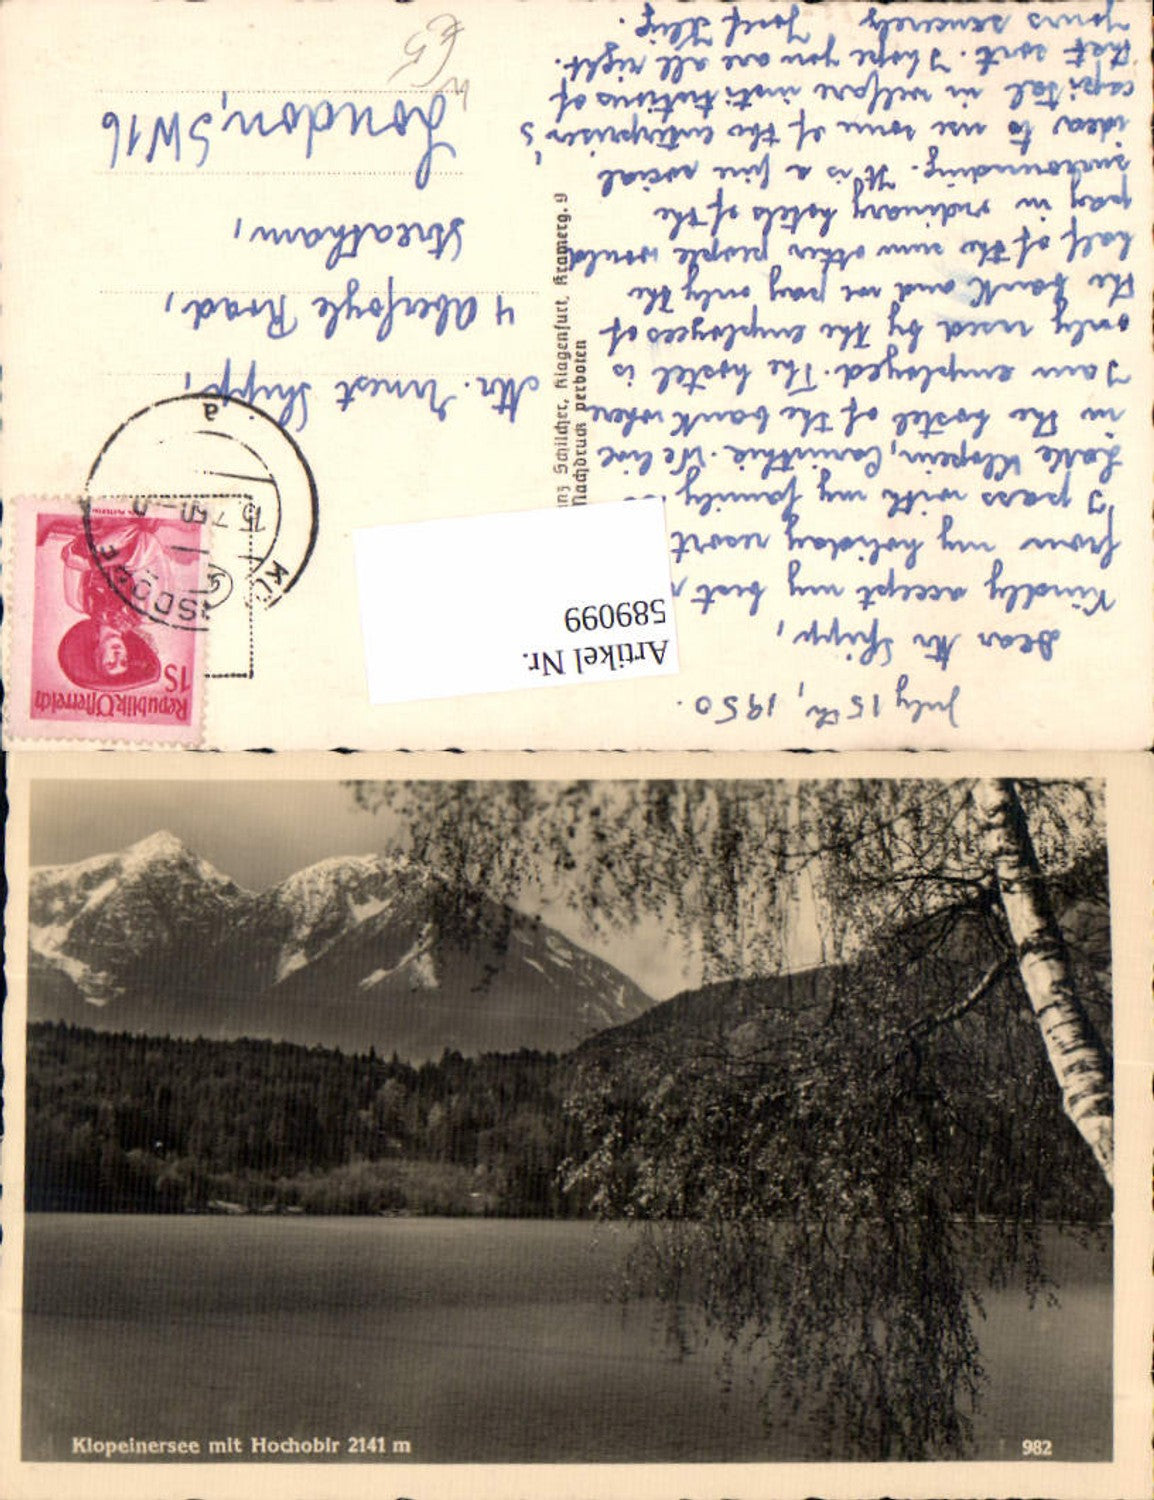 July 15th, 1950.
Dear Mr Shipp,
Kindly accept my best
from my holiday resort
I pass with my family
Lake Klopein, Carinthia. We live
in the hostel of the bank where
I am employed. The hostel is
only used by the employees of
the bank and we pay only the
half of the sum other people would
pay in ordinary hotels of the
surrounding. It is a fine social
idea to use some of the enterpriser's
capital in welfare institutions of
that sort. I hope you are all right.
Yours sincerely Josef
Artikel Nr.
589099
Schilcher, Klagenfurt, Kramerg. 9
Nachdruck verboten
Republik Österreich
1S
15.7.50
a
Mr. Ernest Shipp,
4 Aberfoyle Road,
Streatham,
London, SW16
Klopeinersee mit Hochobir 2141 m
982